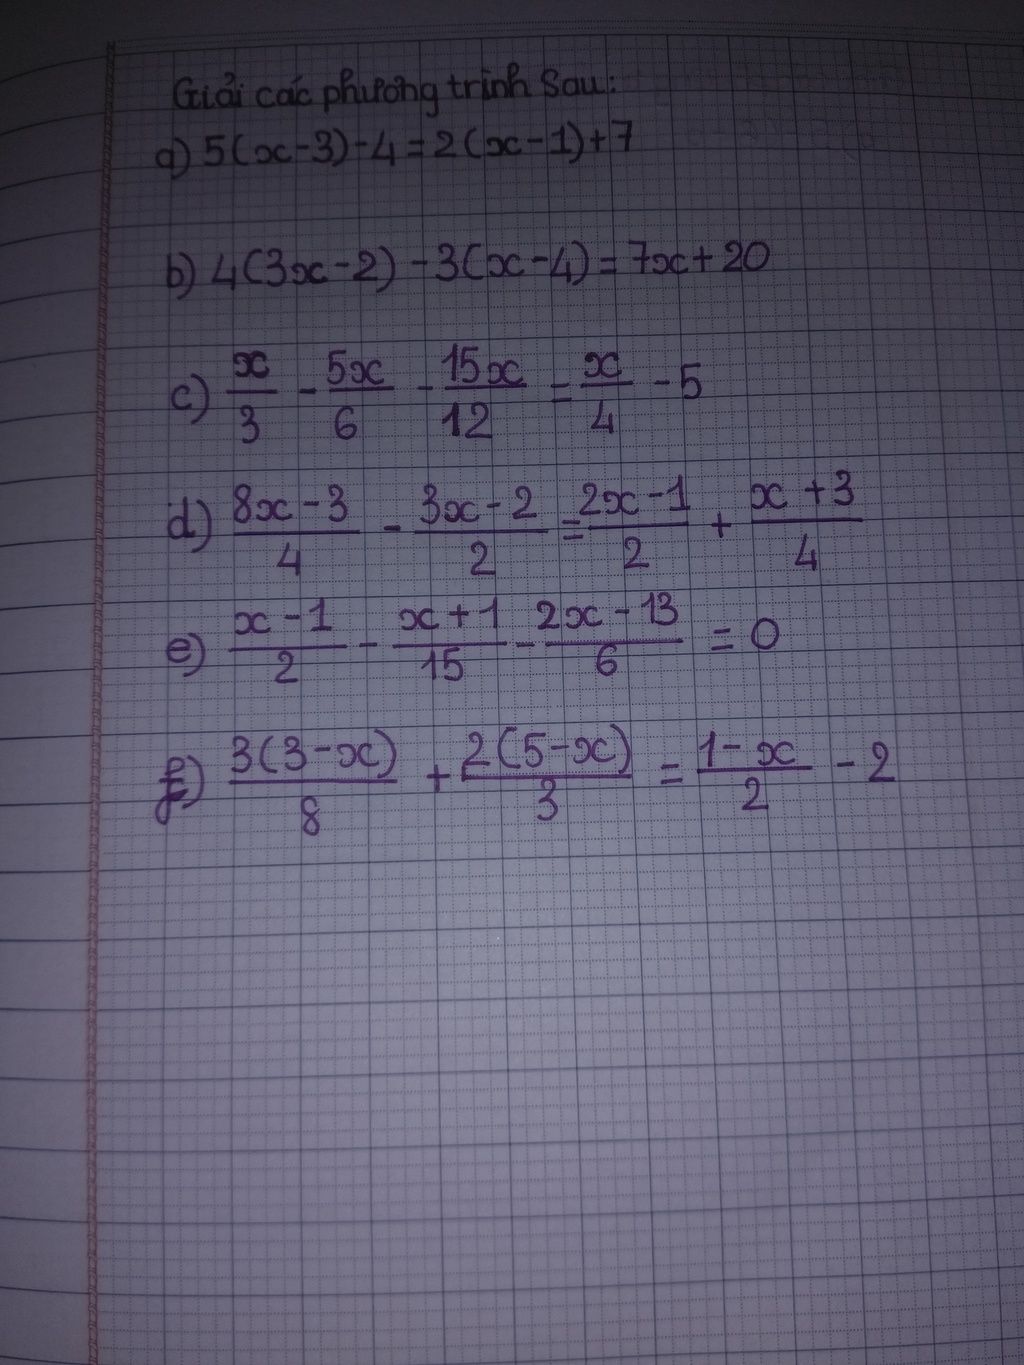 Giải các phương trình Sau:
a) 5(x-3)-4=2(x-1)+7
b) 4(3x-2)-3(x-4)=7x+20
c) x/3 - 5x/6 - 15x/12 = x/4 - 5
d) 8x-3/4 - 3x-2/2 = 2x-1/2 + x+3/4
e) x-1/2 - x+1/15 - 2x-13/6 = 0
f) 3(3-x)/8 + 2(5-x)/3 = 1-x/2 - 2